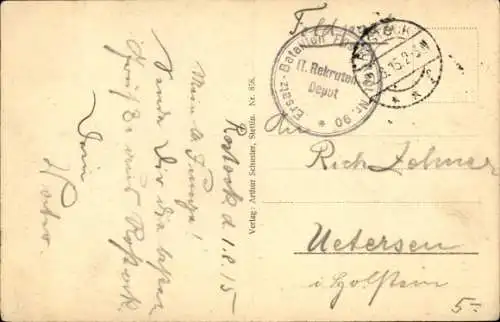 Rostock d. 1.8.15
Mein lb. Junge!
Sende Dir die besten
Grüße aus Rostock
Dein
Vater.
Verlag: Arthur Schuster, Stettin. Nr. 858.
Feldpost
Ersatz-Bataillon
II. Rekruten
Depot
* 90 *
ROSTOCK
8.15.2-3N
An
Rich
Uetersen
i Holstein
5.-